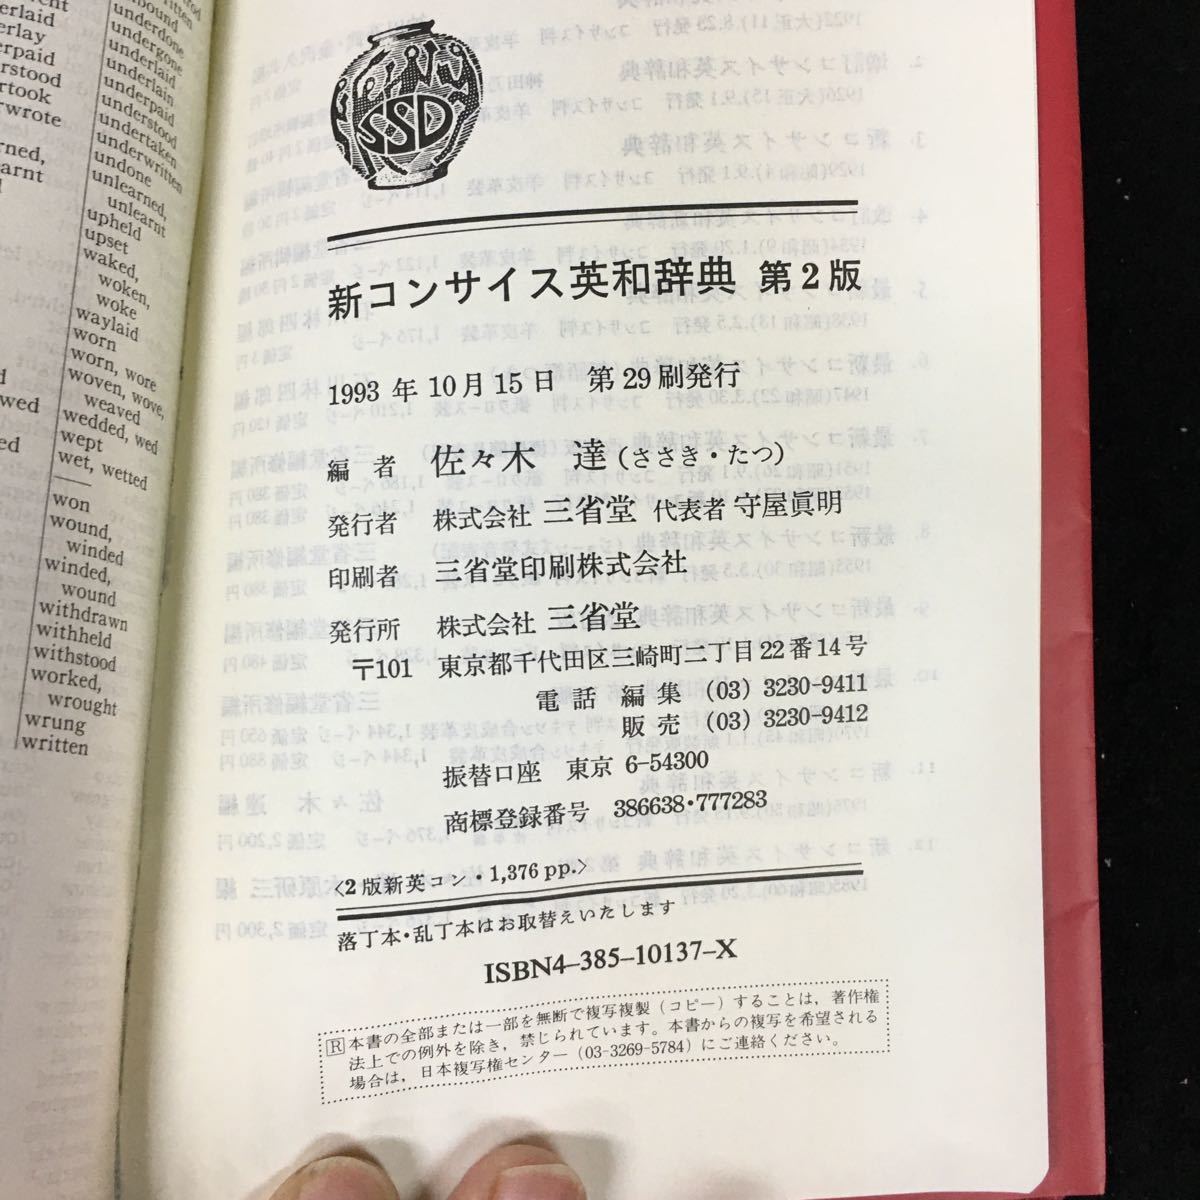 erlaid
erlay
erpaid
rstood
rtook
rwrote
rned,
arnt
wed
ed
underdone
undergone
underlaid
underlain
underpaid
understood
undertaken
underwritten
undone
unlearned,
unlearnt
upheld
upset
waked,
woken,
woke
waylaid
worn
worn, wore
woven, wove,
weaved
wedded, wed
wept
wet, wetted
won
wound,
winded
winded,
wound
withdrawn
withheld
withstood
worked,
wrought
wrung
written
SSD
新コンサイス英和辞典 第2版
1993年10月15日 第29刷発行
編者 佐々木 達(ささき・たつ)
発行者 株式会社 三省堂 代表者 守屋眞明
印刷者 三省堂印刷株式会社
発行所 株式会社 三省堂
〒101 東京都千代田区三崎町二丁目22番14号
電話 編集 (03) 3230-9411
販売 (03) 3230-9412
振替口座 東京 6-54300
商標登録番号 386638・777283
〈2版新英コン・1,376 pp.〉
落丁本・乱丁本はお取替えいたします
ISBN4-385-10137-X
R 本書の全部または一部を無断で複写複製(コピー)することは，著作権
法上での例外を除き，禁じられています。本書からの複写を希望される
場合は，日本複写権センター(03-3269-5784)にご連絡ください。